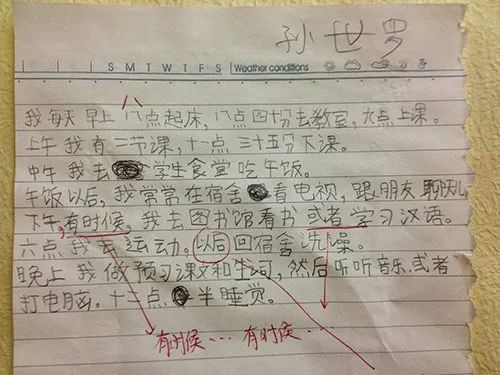 孙世罗
S M T W T F S Weather conditions
八
我每天早上八点起床，八点四十份去教室，九点上课。
上午我有二节课，十一点三十五分下课。
中午我去学生食堂吃午饭。
午饭以后，我常常在宿舍看电视，跟朋友聊天儿
下午，有时候，我去图书馆看书或者学习汉语。
六点我去运动。以后回宿舍洗澡。
晚上我做预习课文和生词，然后听听音乐或者
打电脑。十二点半睡觉。
有时候…有时候…